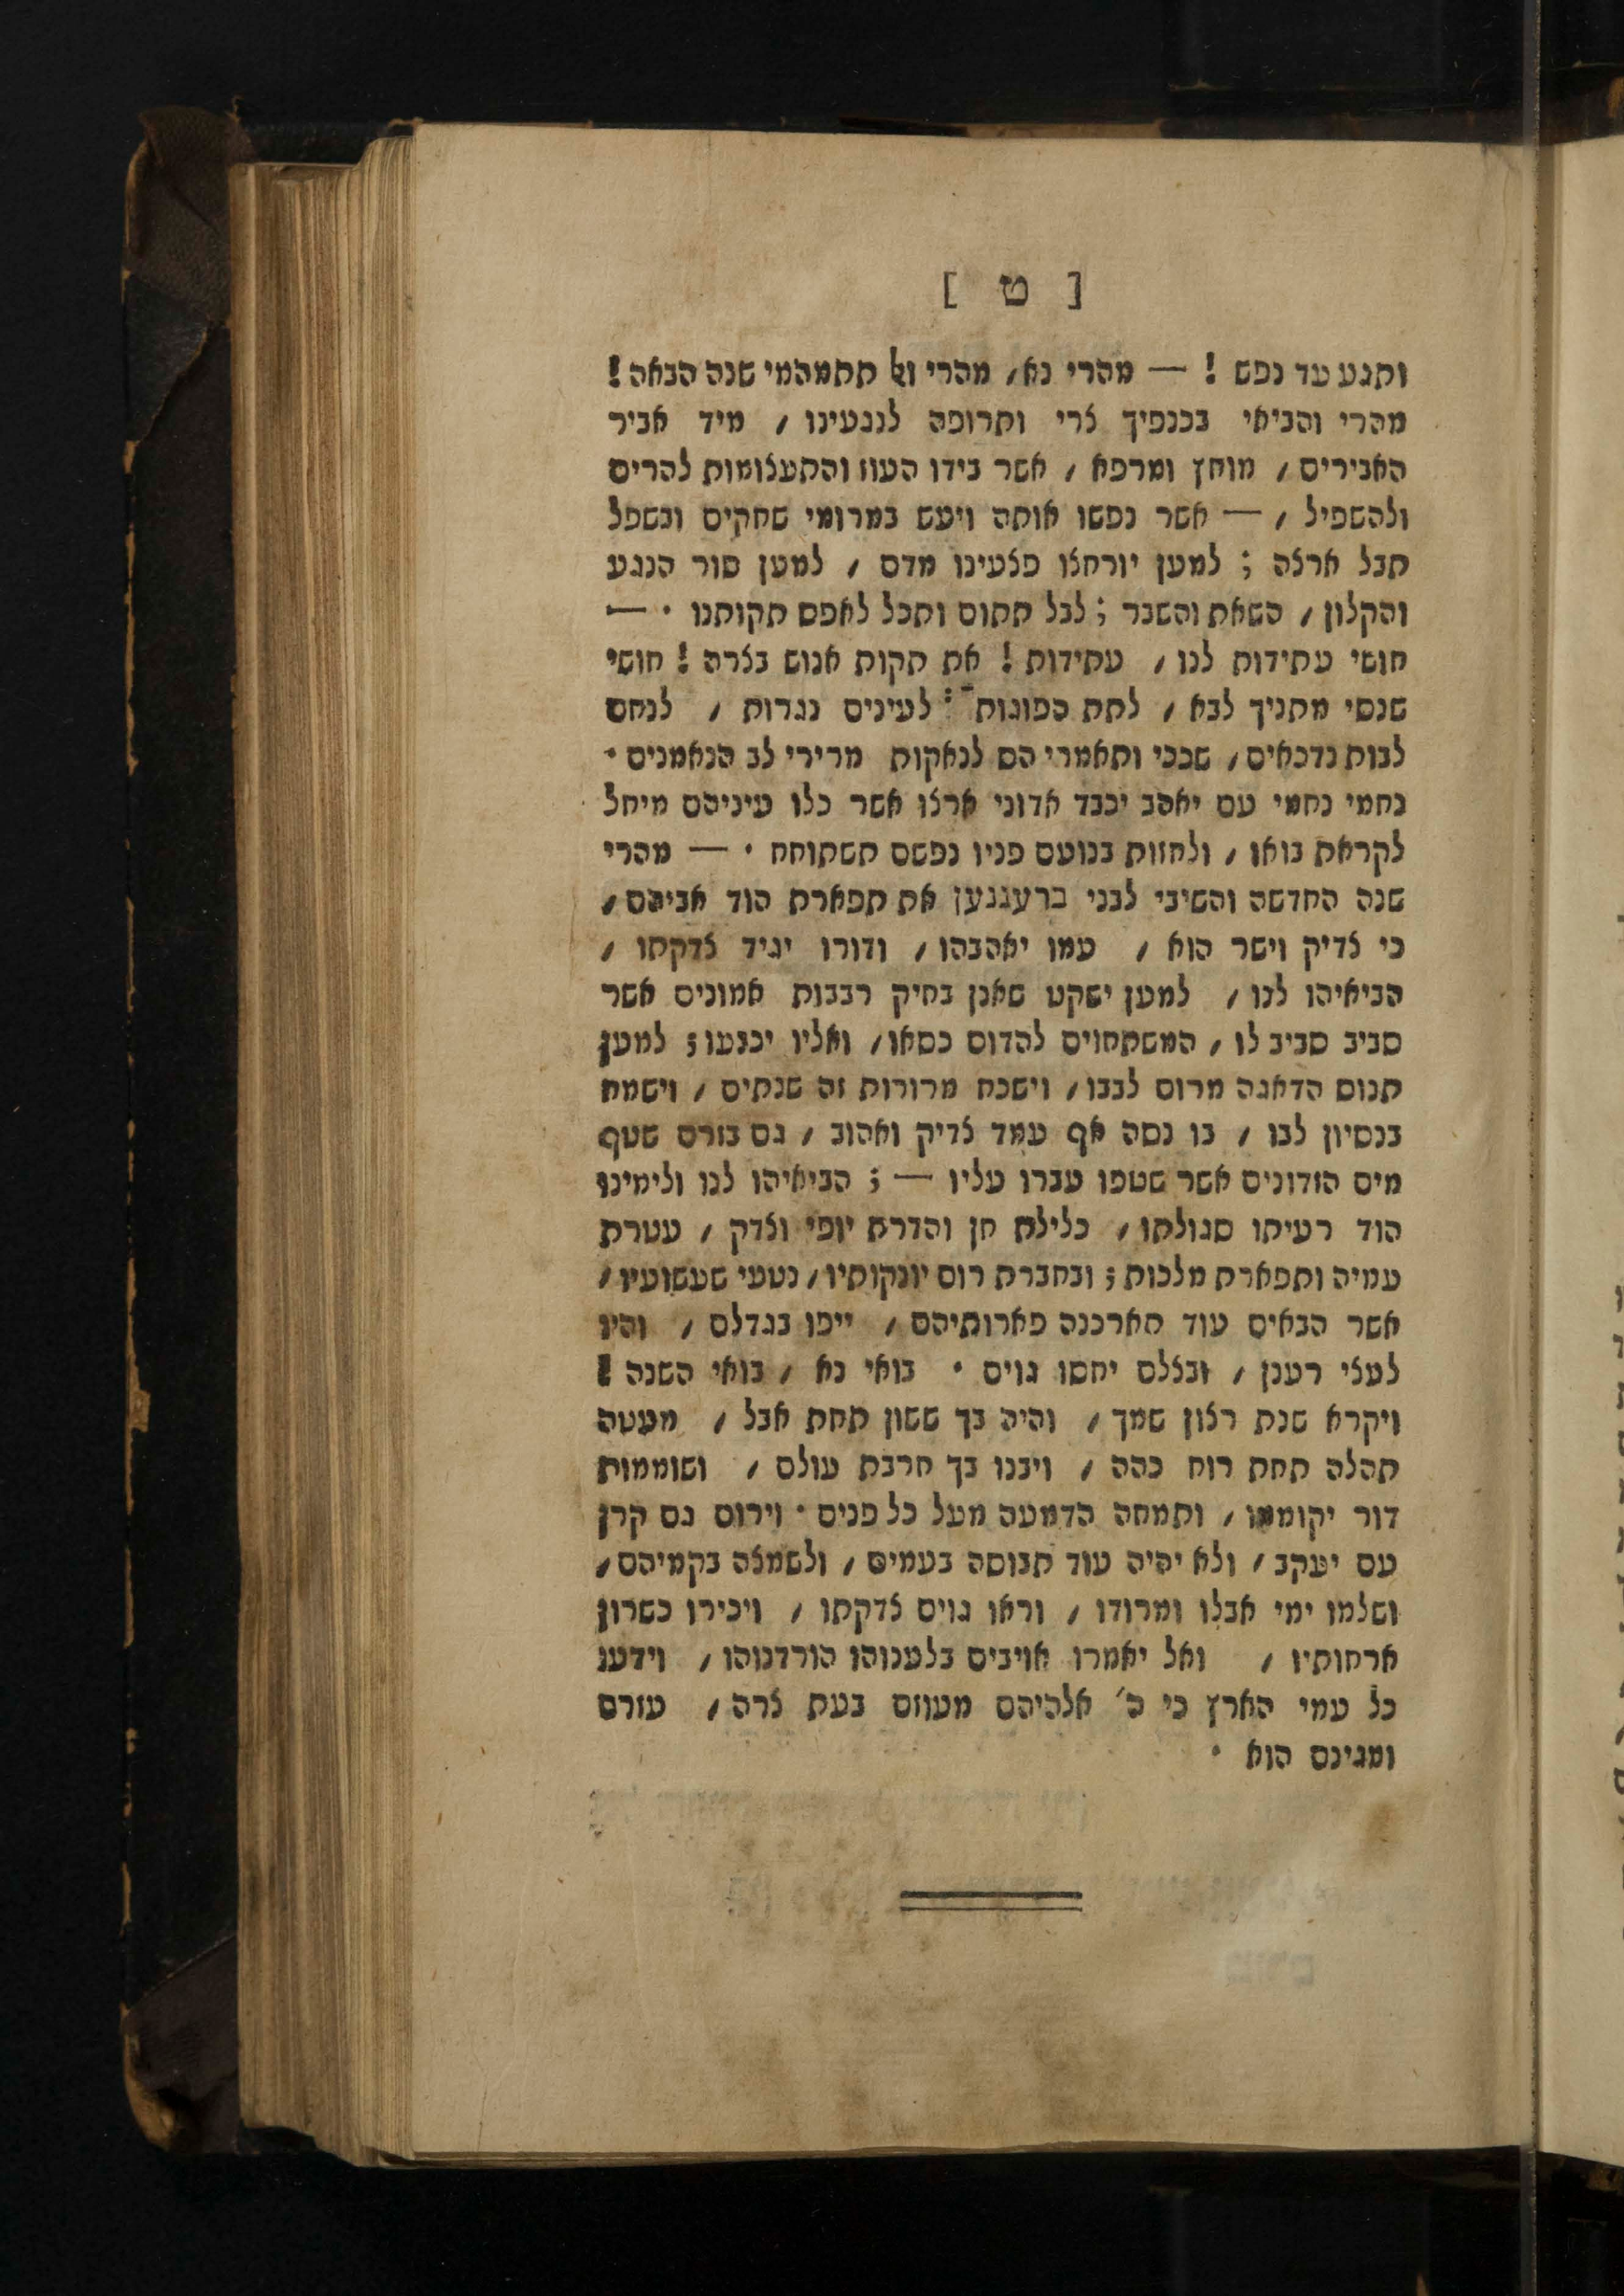 [ ט ]
ותגע עד נפש ! — מהרי נא, מהרי ואל תתמהמי שנה הבאה !
מהרי והביאי בכנפיך צרי ותרופה לנגעינו , מיד אביר
האבירים , מוחץ ומרפא , אשר בידו העוז והתעצומות להרים
ולהשפיל , — אשר נפשו אותה ויעש במרומי שחקים ובשפל
תבל ארצה ; למען יורחצו פצעינו מדם , למען סור הנגע
והקלון , השאת והשבר ; לבל תתום ותכל לאפס תקותנו · —
חושי עתידות לנו , עתידות ! את תקות אנוש בצרה ! חושי
שנסי מתניך לבא , לתת הפוגות : לעינים נגרות , לנחם
לבות נדכאים , שככי ותאמרי הס לנאקות מרירי לב הנאמנים ·
נחמי נחמי עם יאהב יכבד אדוני ארצו אשר כלו עיניהם מיחל
לקראת בואו , ולחזות בנועם פניו נפשם תשתוחח · — מהרי
שנה החדשה והשיבי לבני ברעגגען את תפארת הוד אביהם ,
כי צדיק וישר הוא , עמו יאהבהו , ודורו יגיד צדקתו ,
הביאיהו לנו , למען ישקט שאנן בחיק רבבות אמונים אשר
סביב סביב לו , המשתחוים להדום כסאו , ואליו יכנעו ; למען
תנוס הדאגה מרום לבבו , וישכח מרורות זה שנתים , וישמח
בנסיון לבו , בו נסה אף עמד צדיק ואהוב , גם בזרם שטף
מים הזדונים אשר שטפו עברו עליו — ; הביאיהו לנו ולימינו
הוד רעיתו סגולתו , כלילת חן והדרת יופי וצדק , עטרת
עמיה ותפארת מלכות ; ובחברת רום יונקותיו , נטעי שעשועיו ,
אשר הבאים עוד תארכנה פארותיהם , ייפו בגדלם , והיו
לעצי רענן , ובצלם יחסו גוים · בואי נא , בואי השנה !
ויקרא שנת רצון שמך , והיה בך ששון תחת אבל , מעטה
תהלה תחת רוח כהה , ויבנו בך חרבת עולם , ושוממות
דור יקוממו , ותמחה הדמעה מעל כל פנים · וירום גם קרן
עם יעקב , ולא יהיה עוד תבוסה בעמים , ולשמצה בקמיהם ,
ושלמו ימי אבלו ומרודו , וראו גוים צדקתו , ויכירו כשרון
ארחותיו , ואל יאמרו אויבים בלענוהו הורדנוהו , וידעו
כל עמי הארץ כי ה׳ אלהיהם מעוזם בעת צרה , עוזרם
ומגינם הוא ·